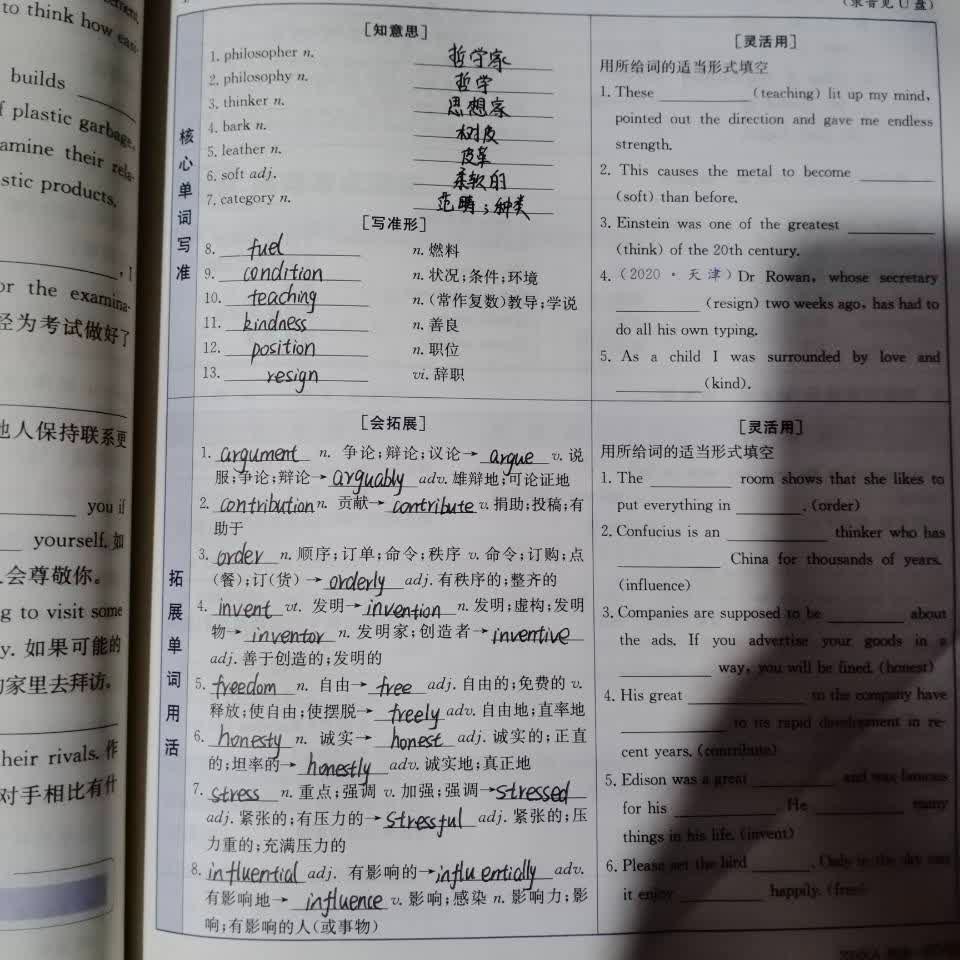 to think how eas-
builds
f plastic garbage,
amine their rela-
stic products.
, I
or the examina-
经为考试做好了
他人保持联系更
you if
yourself. 如
会尊敬你。
ng to visit some
y. 如果可能的
家里去拜访。
heir rivals. 作
对手相比有什
(录音见 U 盘)
核心单词写准
[知意思]
1. philosopher n. 哲学家
2. philosophy n. 哲学
3. thinker n. 思想家
4. bark n. 树皮
5. leather n. 皮革
6. soft adj. 柔软的
7. category n. 范畴;种类
[写准形]
8. fuel n. 燃料
9. condition n. 状况;条件;环境
10. teaching n. (常作复数)教导;学说
11. kindness n. 善良
12. position n. 职位
13. resign vi. 辞职
[灵活用]
用所给词的适当形式填空
1. These ____ (teaching) lit up my mind,
pointed out the direction and gave me endless
strength.
2. This causes the metal to become ____
(soft) than before.
3. Einstein was one of the greatest ____
(think) of the 20th century.
4. (2020·天津) Dr Rowan, whose secretary
____ (resign) two weeks ago, has had to
do all his own typing.
5. As a child I was surrounded by love and
____ (kind).
拓展单词用活
[会拓展]
1. argument n. 争论;辩论;议论→ argue v. 说
服;争论;辩论→ arguably adv. 雄辩地;可论证地
2. contribution n. 贡献→ contribute v. 捐助;投稿;有
助于
3. order n. 顺序;订单;命令;秩序 v. 命令;订购;点
(餐);订(货)→ orderly adj. 有秩序的;整齐的
4. invent vt. 发明→ invention n. 发明;虚构;发明
物→ inventor n. 发明家;创造者→ inventive
adj. 善于创造的;发明的
5. freedom n. 自由→ free adj. 自由的;免费的 v.
释放;使自由;使摆脱→ freely adv. 自由地;直率地
6. honesty n. 诚实→ honest adj. 诚实的;正直
的;坦率的→ honestly adv. 诚实地;真正地
7. stress n. 重点;强调 v. 加强;强调→ stressed
adj. 紧张的;有压力的→ stressful adj. 紧张的;压
力重的;充满压力的
8. influential adj. 有影响的→ influentially adv.
有影响地→ influence v. 影响;感染 n. 影响力;影
响;有影响的人(或事物)
[灵活用]
用所给词的适当形式填空
1. The ____ room shows that she likes to
put everything in ____. (order)
2. Confucius is an ____ thinker who has
____ China for thousands of years.
(influence)
3. Companies are supposed to be ____ about
the ads. If you advertise your goods in a
____ way, you will be fined. (honest)
4. His great ____ to the company have
____ to its rapid development in re-
cent years. (contribute)
5. Edison was a great ____ and was famous
for his ____. He ____ many
things in his life. (invent)
6. Please set the bird ____. Only in the sky can
it enjoy ____ happily. (free)